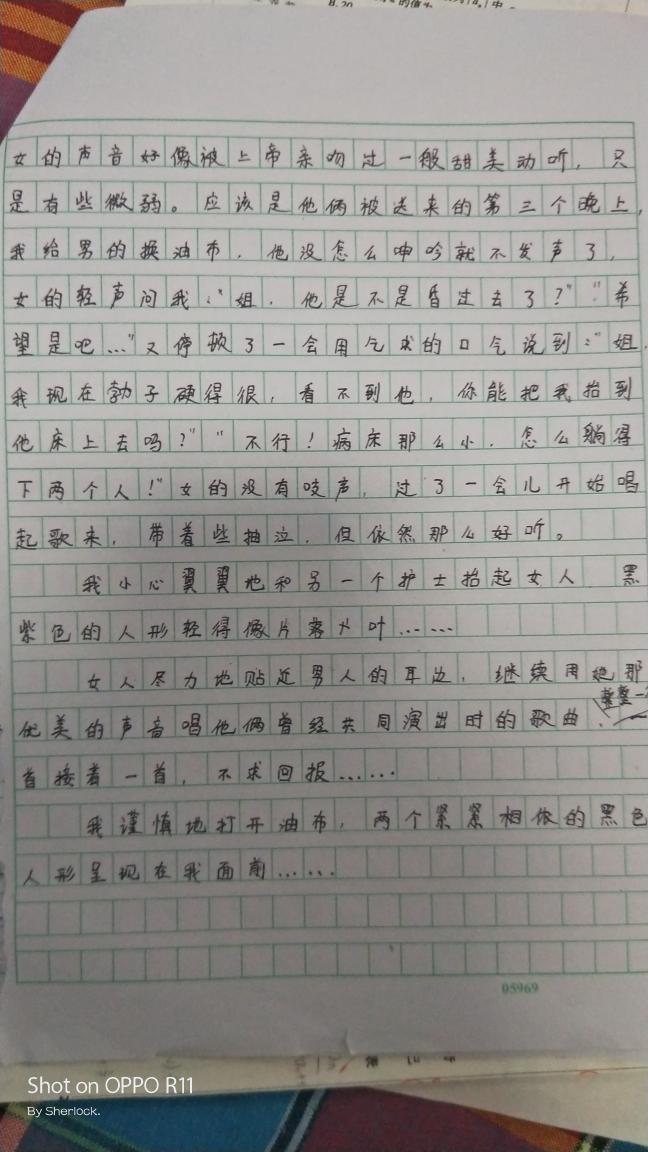 8.20 的值为
女的声音好像被上帝亲吻过一般甜美动听，只
是有些微弱。应该是他俩被送来的第三个晚上，
我给男的换油布，他没怎么呻吟就不发声了，
女的轻声问我：“姐，他是不是昏过去了？”“希
望是吧…”又停顿了一会用乞求的口气说到：“姐，
我现在勃子硬得很，看不到他，你能把我抬到
他床上去吗？”“不行！病床那么小，怎么躺得
下两个人！”女的没有吱声，过了一会儿开始唱
起歌来，带着些抽泣，但依然那么好听。
我小心翼翼地和另一个护士抬起女人 黑
紫色的人形轻得像片落叶……
女人尽力地贴近男人的耳边，继续用她那
优美的声音唱他俩曾经共同演出时的歌曲，
首接着一首，不求回报……
我谨慎地打开油布，两个紧紧相依的黑色
人形呈现在我面前……
05969
Shot on OPPO R11
By Sherlock.